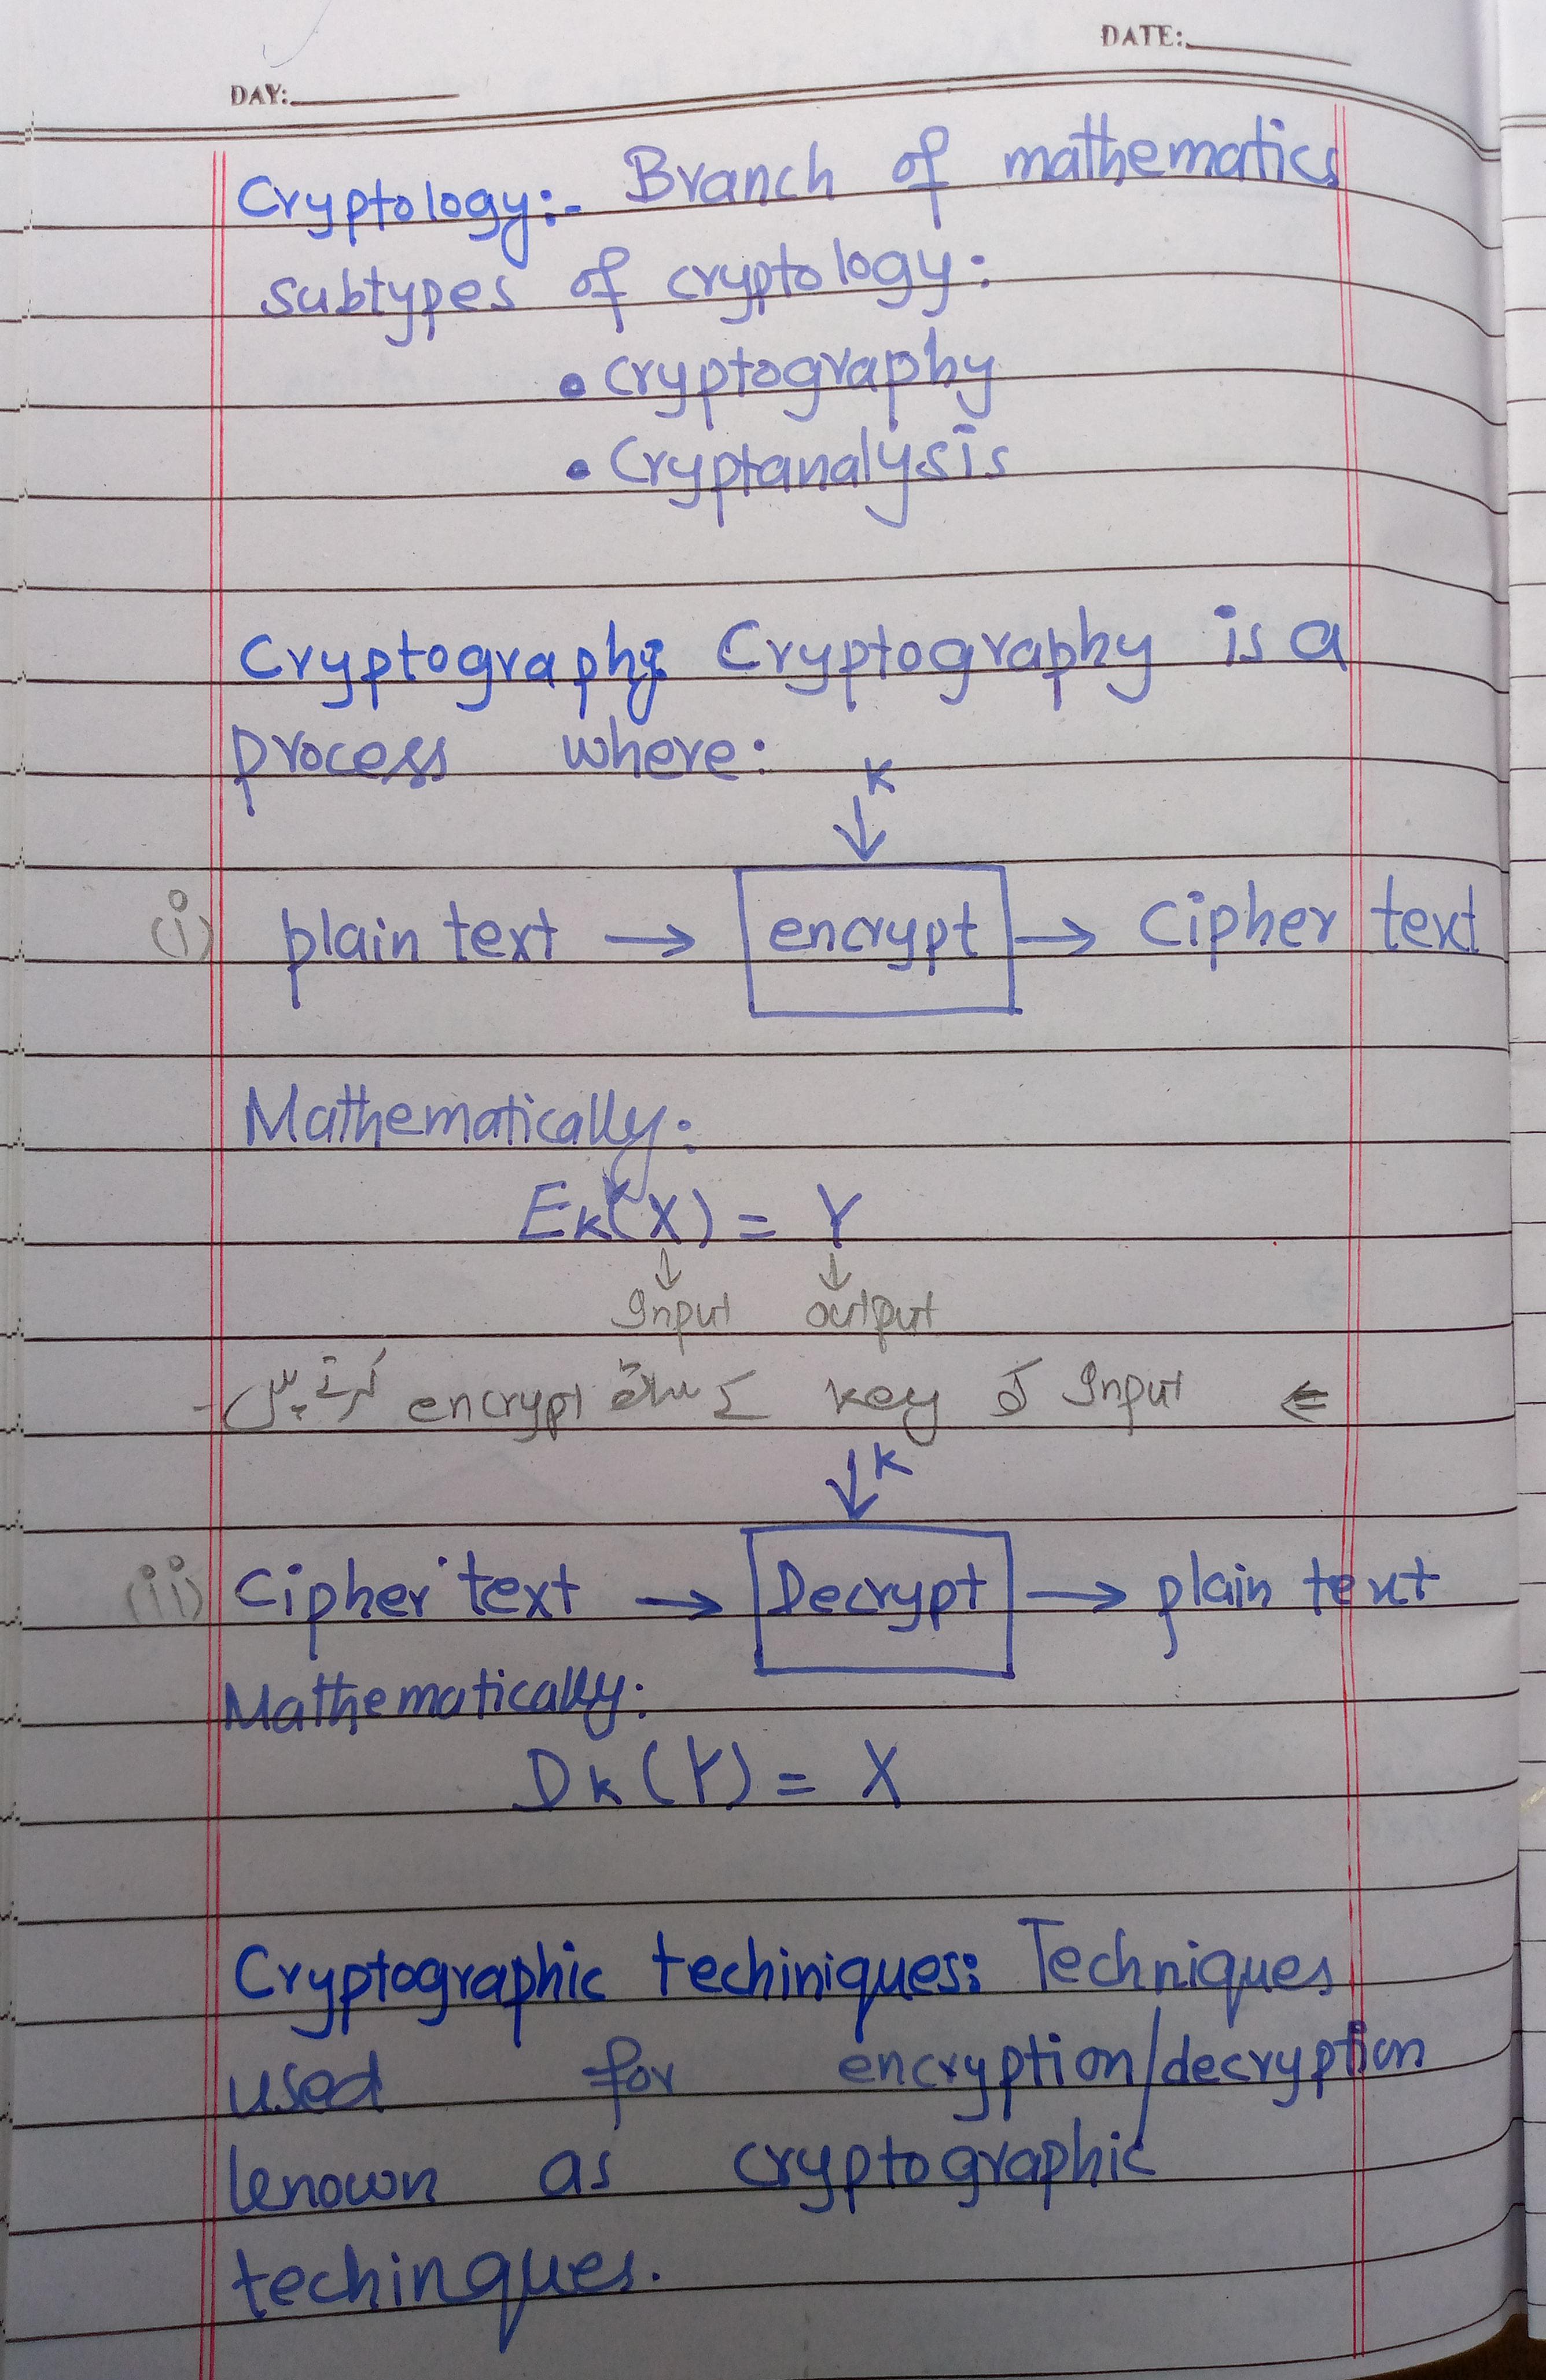 DATE:
DAY:
Cryptology:- Branch of mathematics
subtypes of cryptology:
• cryptography
• Cryptanalysis
Cryptography: Cryptography is a
process where:
K
(i) plain text → encrypt → Cipher text
Mathematically:
Ek(X) = Y
↓ ↓
Input output
⇐ Input کو key کے ساتھ encrypt کرتے ہیں۔
↓ K
(ii) Cipher text → Decrypt → plain text
Mathematically:
Dk(Y) = X
Cryptographic techiniques: Techniques
used for encryption/decryption
known as cryptographic
techinques.